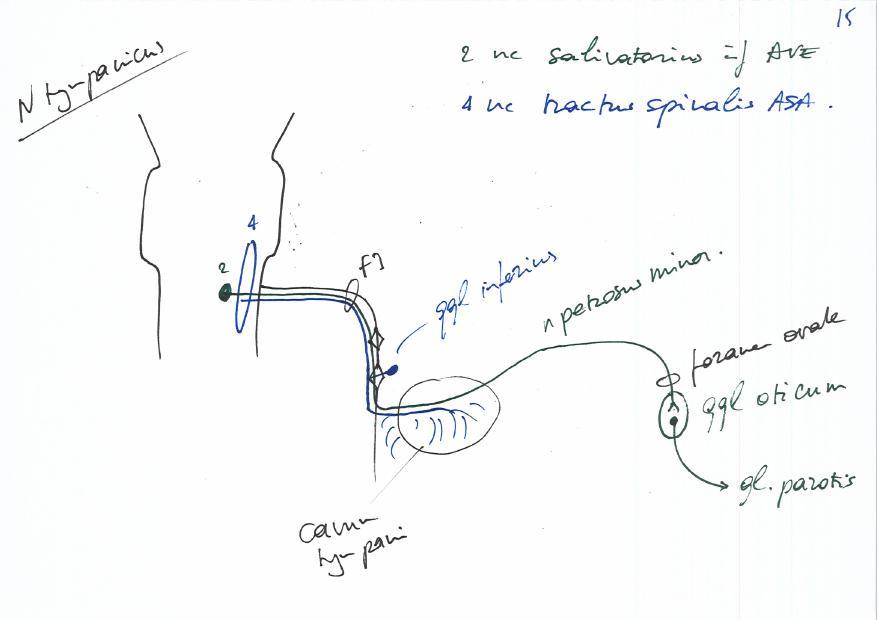 15
N tympanicus
2 nc salivatorius inf AVE
4 nc tractus spinalis ASA.
4
2
FJ
ggl inferius
n petrosus minor.
foramen ovale
ggl oticum
gl. parotis
cavum
tympani